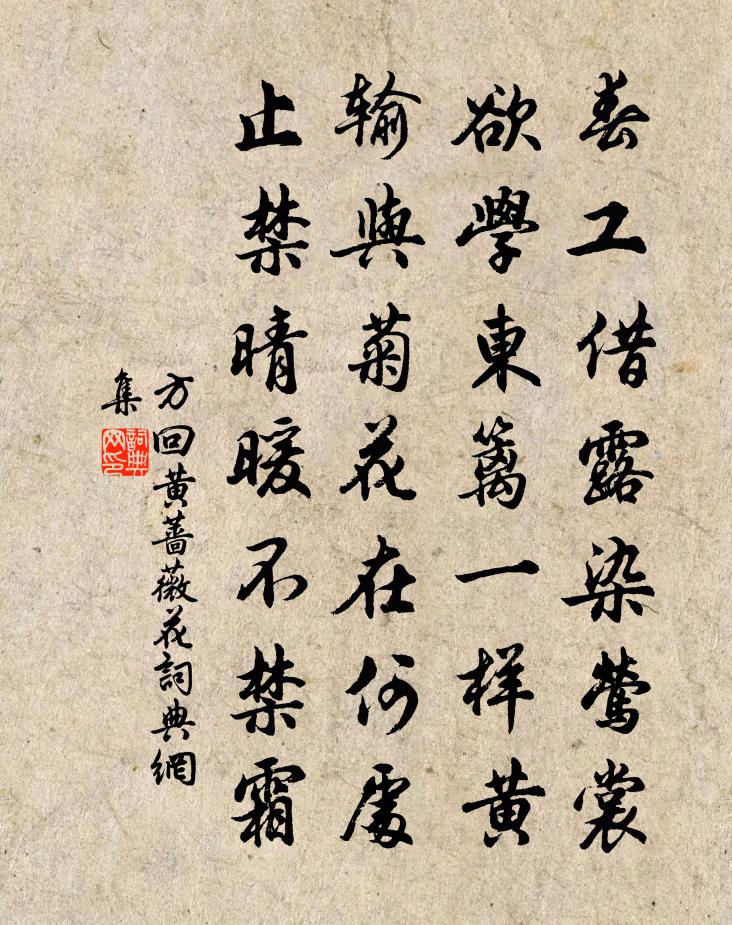 春工借露染鶯裳
欲學東籬一样黄
输與菊花在何處
止禁晴暖不禁霜
方回黄薔薇花詞典網
集
詞典
网印